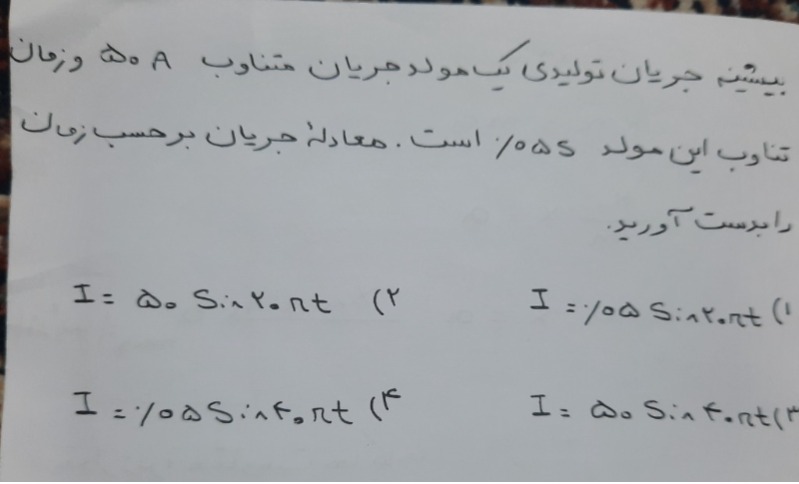 بیشینه جریان تولیدی یک مولد جریان متناوب ۵۰A و زمان
تناوب این مولد ۰/۰۵s است. معادلهٔ جریان برحسب زمان
را بدست آورید.
۱) I = ۰/۰۵ Sin۲۰πt ۲) I = ۵۰ Sin۲۰πt
۳) I = ۵۰ Sin۴۰πt ۴) I = ۰/۰۵ Sin۴۰πt